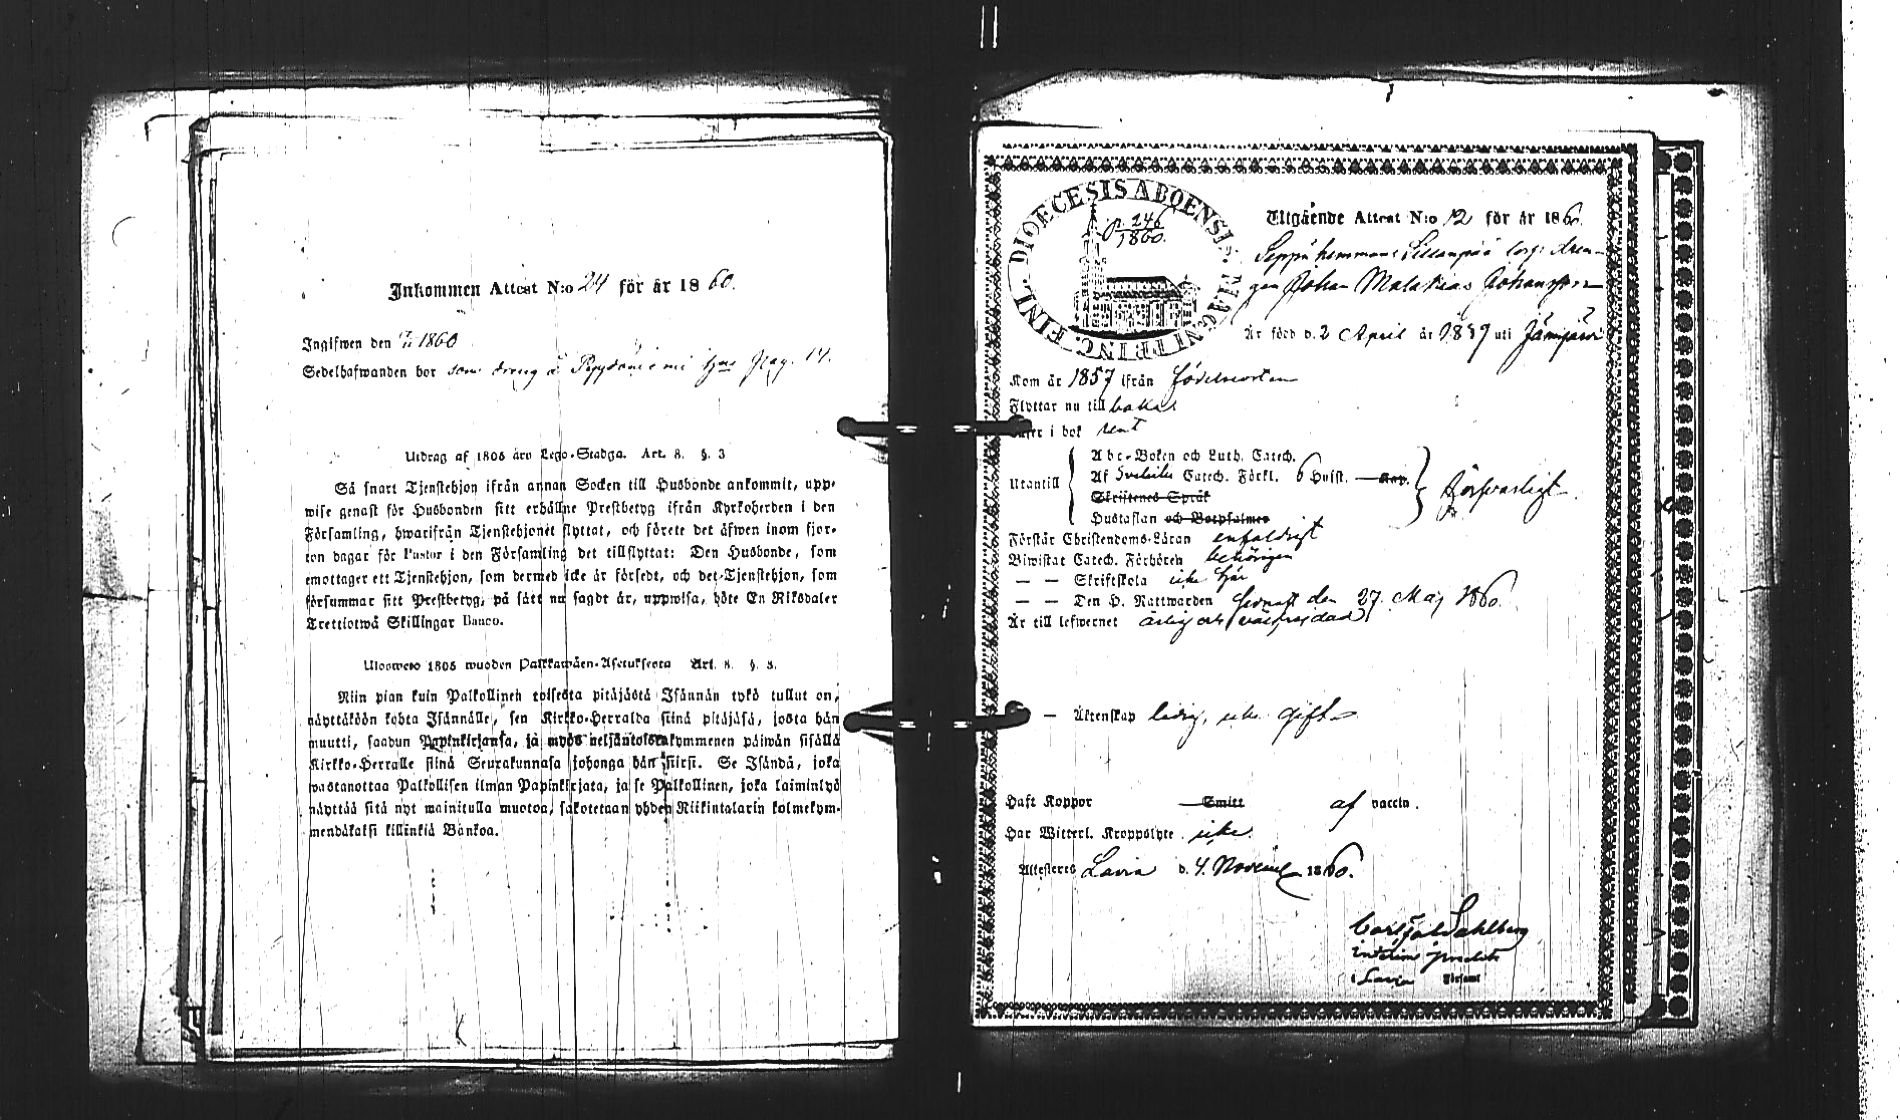 Inkommen Attest N:o 24 för år 1860.
Ingifwen den 1860
Sedelhafwanden bor som dreng å
Utdrag af 1805 års Lego-Stadga. Art. 8. §. 3
Så snart Tjenstehjon ifrån annan Socken till Husbonde ankommit, upp-
wise genast för Husbonden sitt erhållne Prestbetyg ifrån Kyrkoherden i den
Församling, hwarifrån Tjenstehjonet flyttat, och förete det äfwen inom fjor-
ton dagar för Pastor i den Församling det tillflyttat: Den Husbonde, som
emottager ett Tjenstehjon, som dermed icke är försedt, och det Tjenstehjon, som
försummar sitt Prestbetyg, på sätt nu sagdt är, uppwisa, böte En Riksdaler
Trettiotwå Skillingar Banco.
Ulosweto 1805 wuoden Palkkawäen-Asetuksesta Art. 8. §. 3.
Niin pian kuin Palkollinen toisesta pitäjästä Isännän tykö tullut on,
näyttäköön kohta Isännälle, sen Kirkko-Herralda siinä pitäjäsä, josta hän
muutti, saadun Papinkirjansa, ja myös neljäntoistakymmenen päiwän sisällä
Kirkko-Herralle siinä Seurakunnasa johonga hän siirsi. Se Isändä, joka
wastanottaa Palkollisen ilman Papinkirjata, ja se Palkollinen, joka laiminlyö
näyttää sitä nyt mainitulla muotoa, sakotetaan yhden Riikintalarin kolmekym-
mendäkaksi killinkiä Bankoa.
DIOECESIS ABOENSIS MAGNI PRINC. FINL.
P. 246
1860.
Utgående Attest N:o 12 för år 1860.
Seppä hemmans Sillanpää torp dren-
gen Johan Malakias Johansson
Är född d. 2 April år 1837 uti Jämijärvi
Kom år 1857 ifrån födelseorten
Flyttar nu till bakas
Läser i bok rent
Utantill
Abc-Boken och Luth. Catech.
Af Svebilii Catech. Förkl. 6 Hufst.
Skriftenes Språk
Hustaflan och Botpsalmer
försvarligt.
Förstår Christendoms-Läran enfaldigt
Biwistat Catech. Förhören behörigen
— — Skriftskola icke här
— — Den H. Nattwarden senast den 27. Maj 1860.
Är till lefwernet ärlig och välfrejdad
— Äktenskap ledig, icke gift
Haft Koppor Smitt af vaccin.
Har Witterl. Kroppslyte icke.
Attesteras Lavia d. 4. November 1860.
Carl Sahlberg
i Lavia Församl.